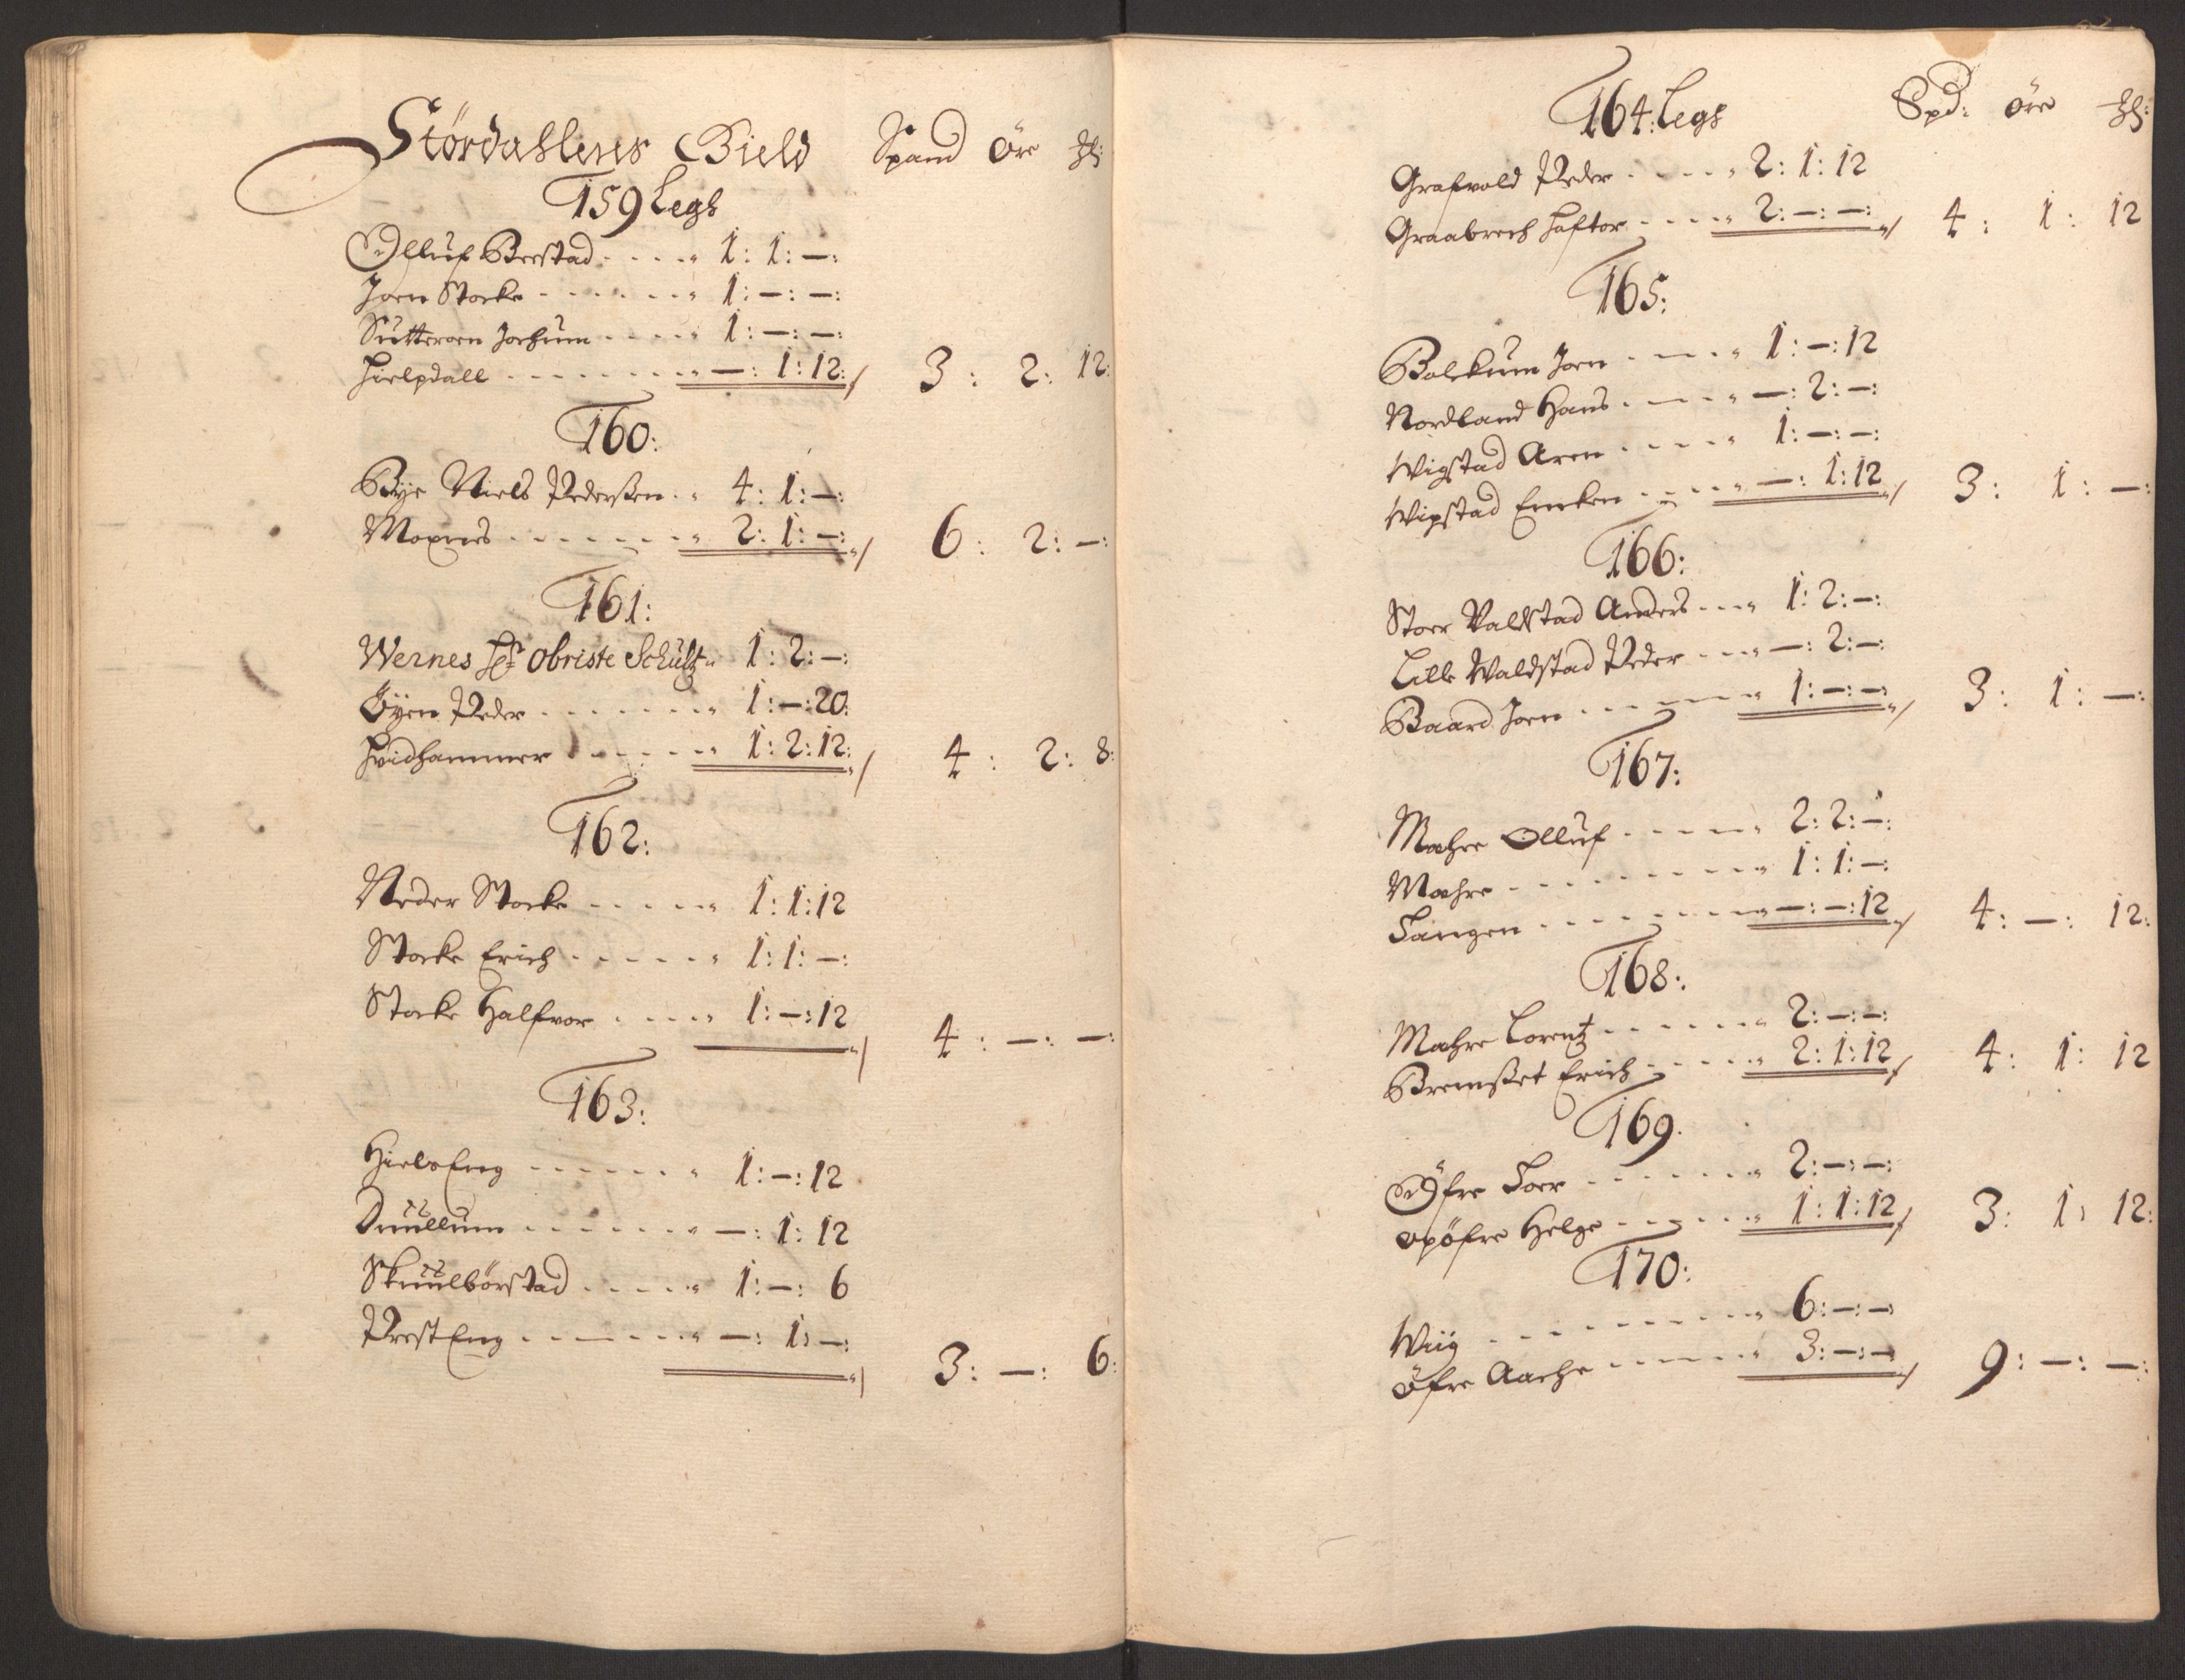 Stördahlens Gield Spand Öre
159 Legs
Olluf Berstad 1: 1: —:
Joen Stocke 1: —: —:
Sutteroen Jochum 1: —: —:
Hielpdall —: 1: 12: 3: 2: 12:
160:
Bye Niels Pederßen 4: 1: —:
Moxnes 2: 1: —: 6: 2: —:
161:
Wernes Hr Obriste Schultz 1: 2: —:
Öyen Peder 1: —: 20:
Hvidhammer 1: 2: 12: 4: 2: 8:
162:
Neder Stocke 1: 1: 12
Stocke Erich 1: 1: —:
Stocke Halfvor 1: —: 12 4: —: —:
163:
HielsEng 1: —: 12
Duullum —: 1: 12
Skuulbörstad 1: —: 6
PrestEng —: 1: —: 3: —: 6:
164: Legs Spd: öre
Grafvold Peder 2: 1: 12
Graabrech Haftor 2: —: —: 4: 1: 12
165:
Bolkum Joen 1: —: 12
Nordland Hans —: 2: —:
Wigstad Aren 1: —: —:
Wigstad —: 1: 12 3: 1: —:
166:
Stoer Valdstad Anders 1: 2: —:
Lille Waldstad Peder —: 2: —:
Baard Joen 1: —: —: 3: 1: —:
167:
Mæhre Olluf 2: 2: —:
Mæhre 1: 1: —:
Langen —: —: 12 4: —: 12:
168:
Mæhre Lorentz 2: —: —:
Bremßet Erich 2: 1: 12 4: 1: 12
169.
Öfre Foer 2: —: —:
opöfre Helge 1: 1: 12 3: 1: 12:
170:
Wiig 6: —: —:
öfre Aasche 3: —: — 9: —: —: